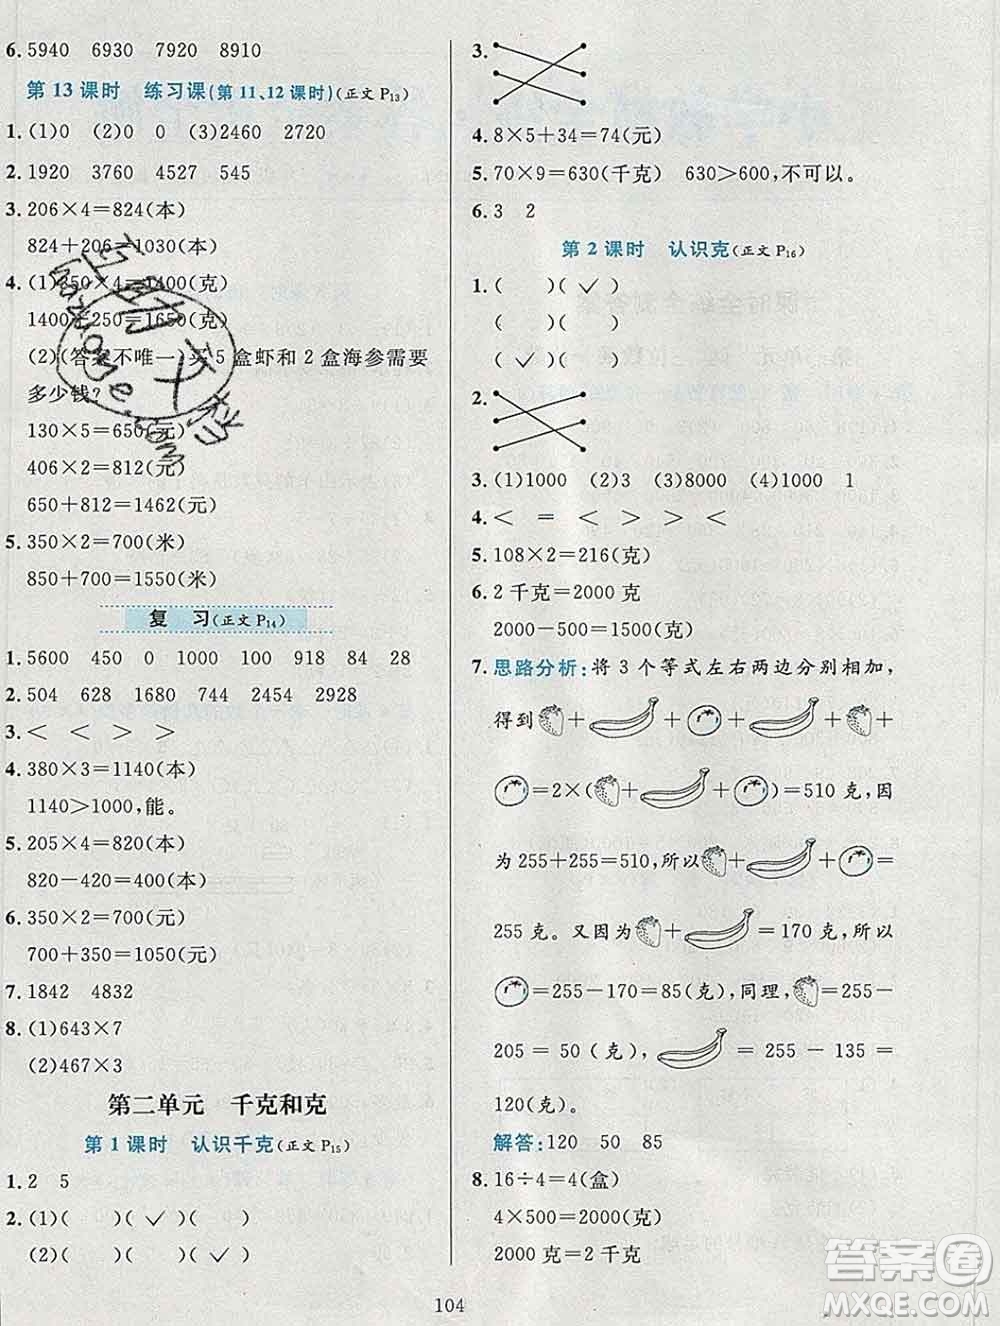 6. 5940 6930 7920 8910
第 13 课时 练习课(第 11、12 课时)(正文 P13)
1. (1)0 (2)0 0 (3)2460 2720
2. 1920 3760 4527 545
3. 206×4=824(本)
824+206=1030(本)
4. (1)350×4=1400(克)
1400+250=1650(克)
(2)(答案不唯一)买 5 盒虾和 2 盒海参需要
多少钱?
130×5=650(元)
406×2=812(元)
650+812=1462(元)
5. 350×2=700(米)
850+700=1550(米)
复 习(正文 P14)
1. 5600 450 0 1000 100 918 84 28
2. 504 628 1680 744 2454 2928
3. < < > >
4. 380×3=1140(本)
1140>1000,能。
5. 205×4=820(本)
820-420=400(本)
6. 350×2=700(元)
700+350=1050(元)
7. 1842 4832
8. (1)643×7
(2)467×3
第二单元 千克和克
第 1 课时 认识千克(正文 P15)
1. 2 5
2. (1)( )(✓)( )
(2)( )( )(✓)
3.
4. 8×5+34=74(元)
5. 70×9=630(千克) 630>600,不可以。
6. 3 2
第 2 课时 认识克(正文 P16)
1. ( )(✓)
( )( )
(✓)( )
2.
3. (1)1000 (2)3 (3)8000 (4)1000 1
4. < = < > > <
5. 108×2=216(克)
6. 2 千克=2000 克
2000-500=1500(克)
7. 思路分析:将 3 个等式左右两边分别相加,
得到 + + + + +
=2×( + + )=510 克,因
为 255+255=510,所以 + + =
255 克。又因为 + =170 克,所以
=255-170=85(克),同理, =255-
205=50(克), =255-135=
120(克)。
解答:120 50 85
8. 16÷4=4(盒)
4×500=2000(克)
2000 克=2 千克
104
答案圈
MXQE.COM